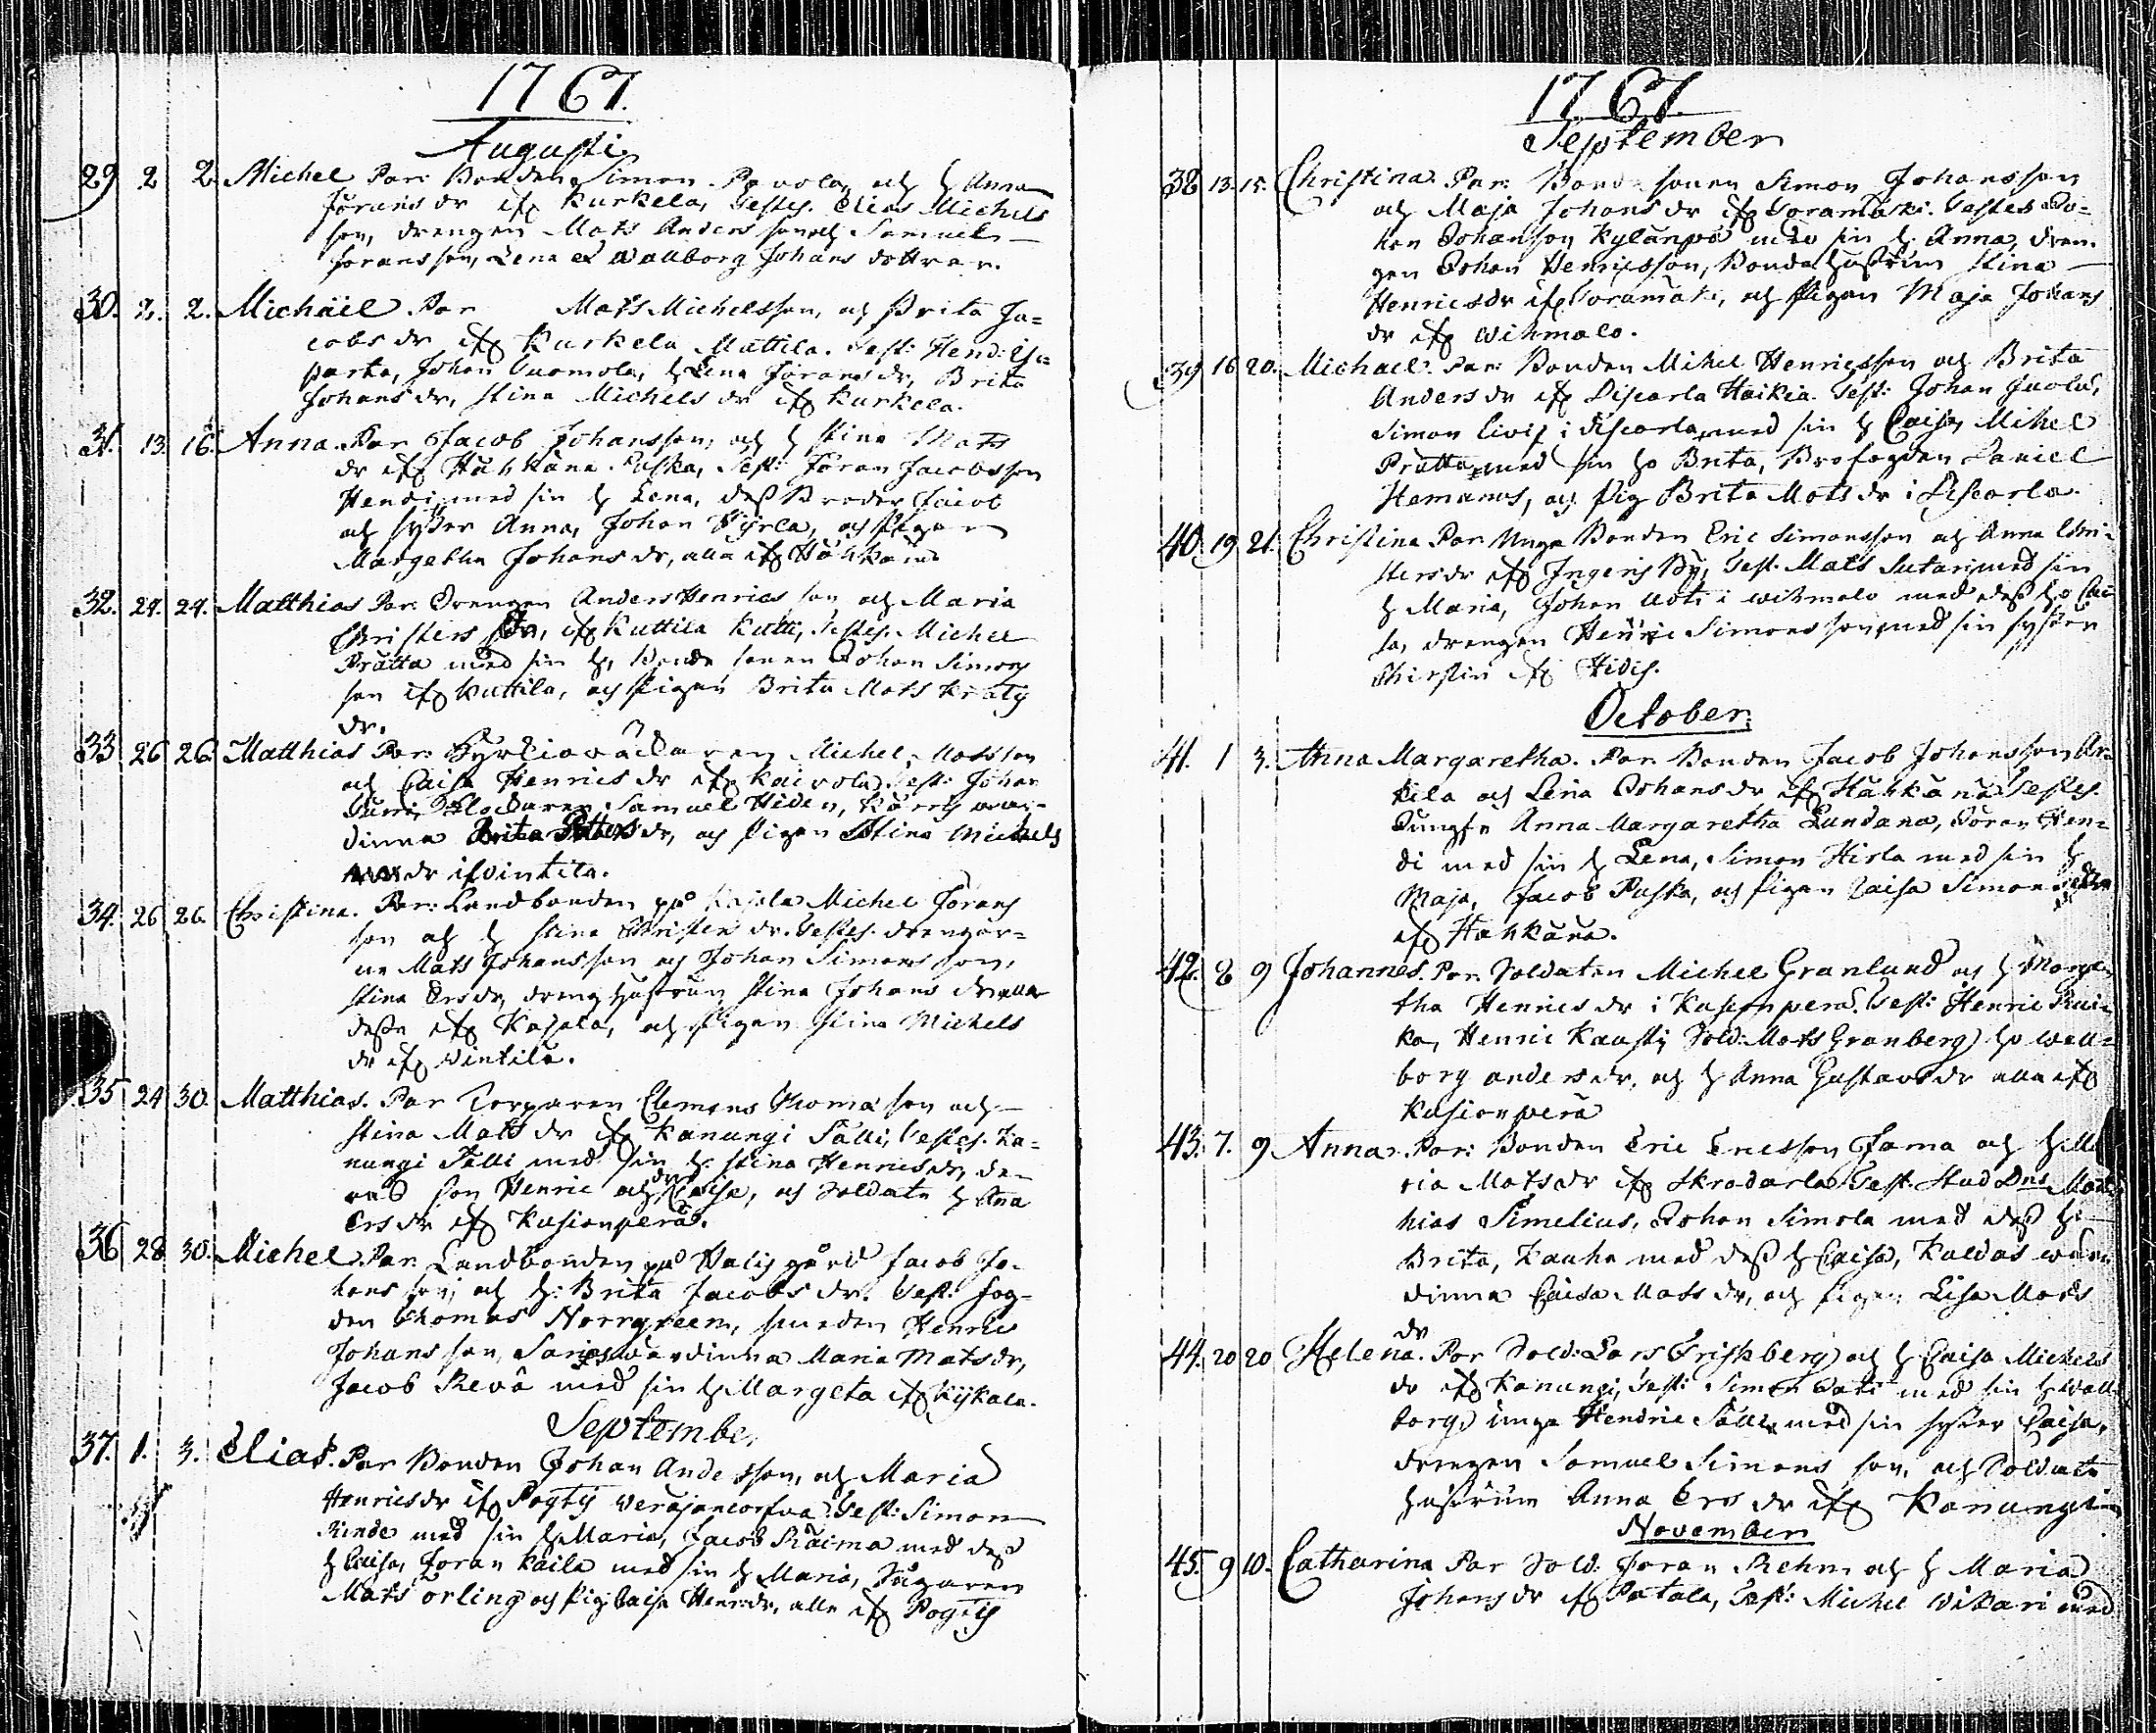 1767.
Augusti.
29 2 2 Michel Par: Bonden Simon Pavola, och h Anna
Jörans dr ifr Kurkela, Testes. Elias Michels
son, drengen Mats Anders son och Samuel
Joransson, Lena et Wallborg Johans dottrar.
30. 2. 2. Michäel Par Mats Michelsson, och Brita Ja=
cobs dr ifr Kurkela Mattila. Test: Hend:
parta, Johan Tuomola, h Lena Jörans dr, Brita
Johans dr, Stina Michels dr ifr Kurkela.
31. 13. 16. Anna. Par Jacob Johansson, och h Stina Mats
dr ifr Hähkänä Puska, Test: Jöran Jacobsson
Hendi med sin h Lena, dess Broder Jacob
och syster Anna, Johan och Pigan
Margetha Johans dr, alla ifr Hähkänä
32. 24. 24. Matthias Par: Drengen Anders Henrics son och Maria
Christers dr, ifr Kuttila Kutti, Testes. Michel
Prätta med sin h, Bonde sonen Johan Simons
son ifr Kuttila, och Pigan Brita Mats
dr.
33 26 26. Matthias Par: Michel Matsson
och Caisa Henrics dr ifr Kaivola. Test: Johan
Klockaren Samuel Hiden,
dinna Brita Petters dr, och Pigan Stina Michels
dr if Vintila.
34. 26 26. Christina. Par: Landbonden på Kajala Michel Jörans
son och h Stina Christers dr. Testes. drengar=
ne Mats Johansson och Johan Simons son,
Stina Ers dr, dreng hustrun Stina Johans dr alla
desse ifr Kajala, och Pigan Stina Michels
dr ifr Vintila.
35 24 30. Matthias. Par Torparen Clemens Thoma son och
Stina Mats dr ifr Kanungi Sälli, Testes. Ka=
nungi Sälli med sin h: Stina Henrics dr, de=
ras son Henric och dr Caisa, och Soldate h Anna
Ers dr ifr Kusionperä.
36 28 30. Michel Par: Landbonden på Halis gård Jacob Jo=
hans son, och h: Brita Jacobs dr. Test: Fog=
den Thomas Norrgreen, smeden Henric
Johans son, wärdinna Maria Mats dr,
Jacob Revä med sin h Margeta ifr Kijkala.
September
37. 1. 3. Elias. Par Bonden Johan Andersson, och Maria
Henrics dr ifr Pogtij Veräjäncorfva Test: Simon
Rinde med sin h Maria, Jacob Räima med dess
h Caisa, Joran Kaila med sin h Maria,
Mats Orling och Pig Caisa Henr: dr, alle ifr Pogtij
1767.
September
38 13. 15. Christina Par: Bonde sonen Simon Johansson
och Maja Johans dr ifr Toramäki. Testes Jo=
han Johansson Kylänpä med sin h: Anna, dren=
gen Johan Henricsson, Bonde hustrun Stina
Henrics dr ifr Toramäki, och Pigan Maja Johans
dr ifr Wihmalo.
39 16 20. Michael. Par: Bonden Mihel Henricsson och Brita
Anders dr ifr Piscarla Haikia. Test: Johan Juola,
Simon i Piscarla med sin h Caisa, Mihel
Prätta, med sin ho Brita, Brofogden Daniel
Hemanus, och Pig Brita Mats dr i Piscarla.
40 19 21. Christina Par Unga Bonden Eric Simonsson och Anna Chri=
sters dr ifr Ingeris By, Test. Mats Sutari med sin
h Maria, Johan Uoti i Wihmalo med dess ho Cai=
sa, drengen Henric Simons son, med sin syster
Chirstin ifr Hidis.
October
41. 1 3. Anna Margaretha. Par Bonden Jacob Johansson Är=
kila och Lena Johans dr ifr Hähkänä Testes.
Jungfr Anna Margaretha Lundana, Jöran Hen=
di med sin h Lena, Simon Hirla med sin h
Maja, Jacob Puska, och Pigan Caisa Simons
ifr Hähkänä.
42. 8 9 Johannes. Par. Soldaten Michel Granlund och h Marga
tha Henrics dr i Kusionperä. Test: Henric
ka, Henric Kausti, Sold: Mats Granberg) ho Wall=
borg Anders dr, och h Anna Gustavs dr alla ifr
Kusionperä
43. 7. 9 Anna. Par: Bonden Eric Ericsson Jama och h: Ma
ria Mats dr ifr Skrädarla Test. Stud Dns Matt
hias Simelius, Johan Simola med dess h:
Brita, Kauha med dess h Caisa, Kaldas wär
dinna Caisa Mats dr, och Pigan Lisa Mats
dr
44. 20 20 Helena. Par Sold: Lars Friskberg) och h Caisa Michels
dr ifr Kanungi, Test: Simon med sin h Wall
borg) unga Hendric Sälli med sin syster Caisa,
drengen Samuel Simons son, och Soldate
hustrun Anna Ers dr ifr Kanungi
November
45. 9 10. Catharina Par Sold. Joran Rehn och h Maria
Johans dr ifr Patala, Test: Michel Wikari med